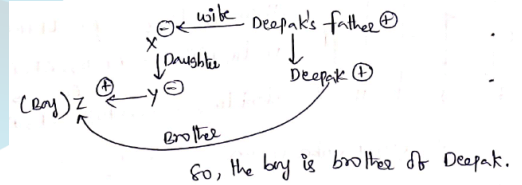 wife
Deepak's father +
X -
Daughter
Deepak +
(Boy) Z + Y -
Brother
So, the boy is brother of Deepak.